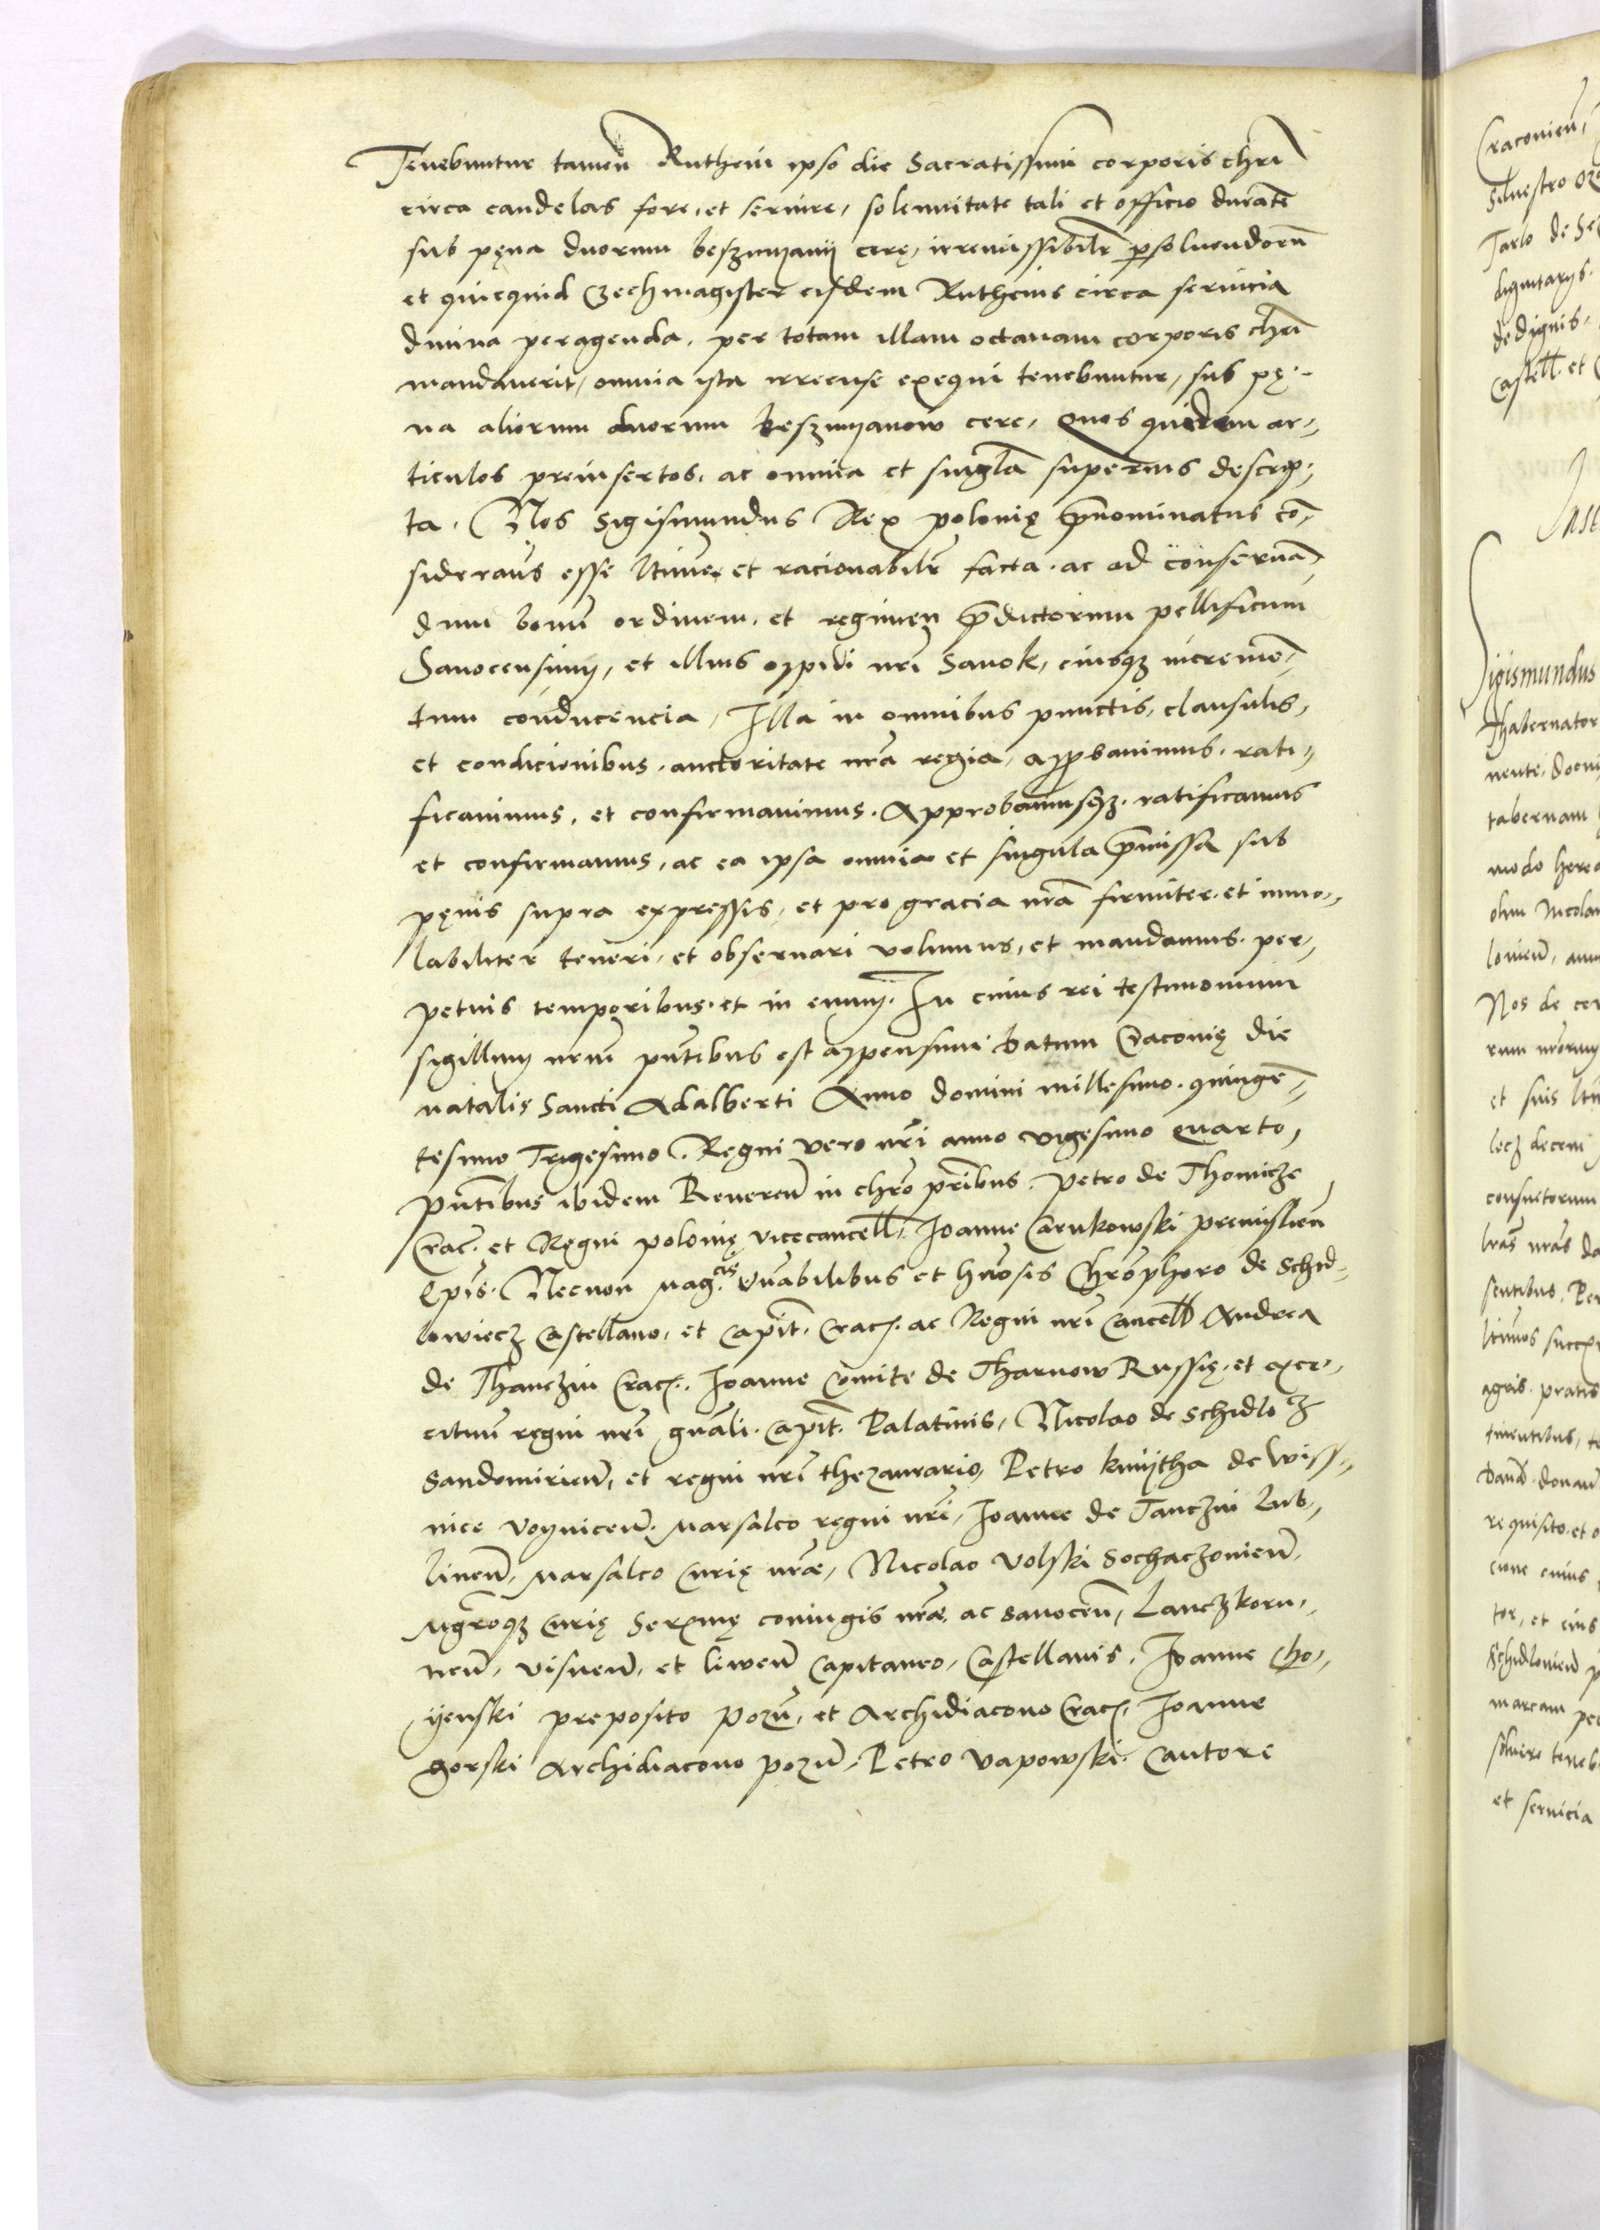 Tenebuntur tamen Rutheni ipso die Sacratissimi corporis chri̅
circa candelas fore, et seruire, solennitate tali et officio durate̅
sub pęna duorum beszmyanij cerę, irremissibilr̅ p̱soluendoru̅
et quicquid Czechmagister eisdem Ruthenis circa seruicia
diuina peragenda, per totam illam octauam corporis chri̅
mandauerit, omnia ista irrecuse exequi tenebuntur, sub pę-
na aliorum duorum beszmyanow cere, Quos quidem ar-
ticulos preinsertos, ac omnia et singl̅a superius descrip-
ta. Nos Sigismundus Rex polonię p̅nominatus co̅-
siderau̅s esse ltime et racionabilr̅ facta, ac ad conserua̅-
dum bonu̅ ordinem, et regimen p̅dictorum pellificum
Sanocensium, et illius oppidi nr̅i Sanok, eiusqz increme̅-
tum conducencia, Illa in omnibus punctis, clausulis,
et condicionibus, auctoritate nr̅a regia, app̱bauimus, rati-
ficauimus, et confirmauimus. Approbamusqz, ratificamus
et confirmamus, ac ea ipsa omnia et singula p̅missa sub
pęnis supra expressis, et pro gracia nr̅a firmiter et inuio-
labiliter teneri, et obseruari volumus, et mandamus, per-
petuis temporibus, et in euum. In cuius rei testimonium
sigillum nr̅um pn̅tibus est appensum Datum Cracouię die
natalis Sancti Adalberti Anno domini millesimo quinge̅-
tesimo Trigesimo. Regni vero nr̅i anno vigesimo quarto,
Pn̅tibus ibidem Reueren̅ in chro̅ pr̅ibus, Petro de Thomicze
Crac̅. et Regni polonię vicecancell̅, Joanne Carnkowski premislien̅
Epis̅. Necnon Mag.cis Vn̅abilibus et hn̅osis Chro̅phoro de Schid-
lowiecz Castellano, et Capit̅. Crac̅. ac Regni nr̅i Cancell̅ Andrea
de Thanczin Crac̅. Joanne Comite de Tharnow Russię, et exer-
cituu̅ regni nr̅i gn̅ali Capit̅. Palatinis, Nicolao de Schidlo.cz
Sandomirien̅, et regni nr̅i thezaurario, Petro kmijtha de Wiss-
nice Voynicen̅. Marsalco regni nr̅i, Joanne de Tanczin Lub-
linen̅, Marsalco Curię nr̅ae, Nicolao Volski Sochaczouien̅.
Mgr̅oqz Curię Ser.mę coniugis nr̅ae, ac Sanocen̅, Lanczkoru-
nen̅, Visnen̅, et liwen̅ Capitaneo, Castellanis, Joanne Cho-
yenski preposito Pozn̅, et Archidiacono Crac̅, Joanne
Gorski Archidiacono Pozn̅, Petro Vapowski Cantore
Cracouien̅,
Siluestro
Tarlo de
dignitarijs
de dignis
Castell̅. et
Sigismundus
tabernam
modo
olim Nicola
louien̅,
Nos de
et suis
decem
consuetorum
lr̅as nr̅as
sentibus.
ltimos
agris, pratis
requisito, et
cione cuius
tor, et eius
marcam
soluere
et seruicia